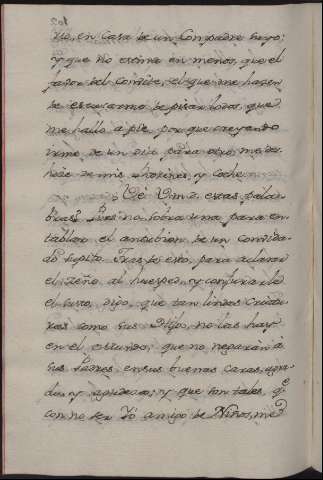 rio, en Casa de un Compadre suyo;
y que no estima en menos, que el
favor del Combite, el que me hacen
de escusarme de pisar lodos, que
me hallo a pie, por que creyendo
irme de un dia para otro, me des-
hice de mis                y coche.
Oè Vm.d estas pala-
bras? Pues no sobra una para en-
tablar el            de un combida-
do supito. Tras de esto, para aclarar
el zeño al huesped, y conjurarle
el susto, digo, que tan lindas Criatu-
ras como sus Hijos, no las hay
en el Mundo; que no negaràn à
sus Padres, en sus buenas caras, agra-
do, y                ; y que son tales, q.e
con no ser Yo amigo de Niños, me